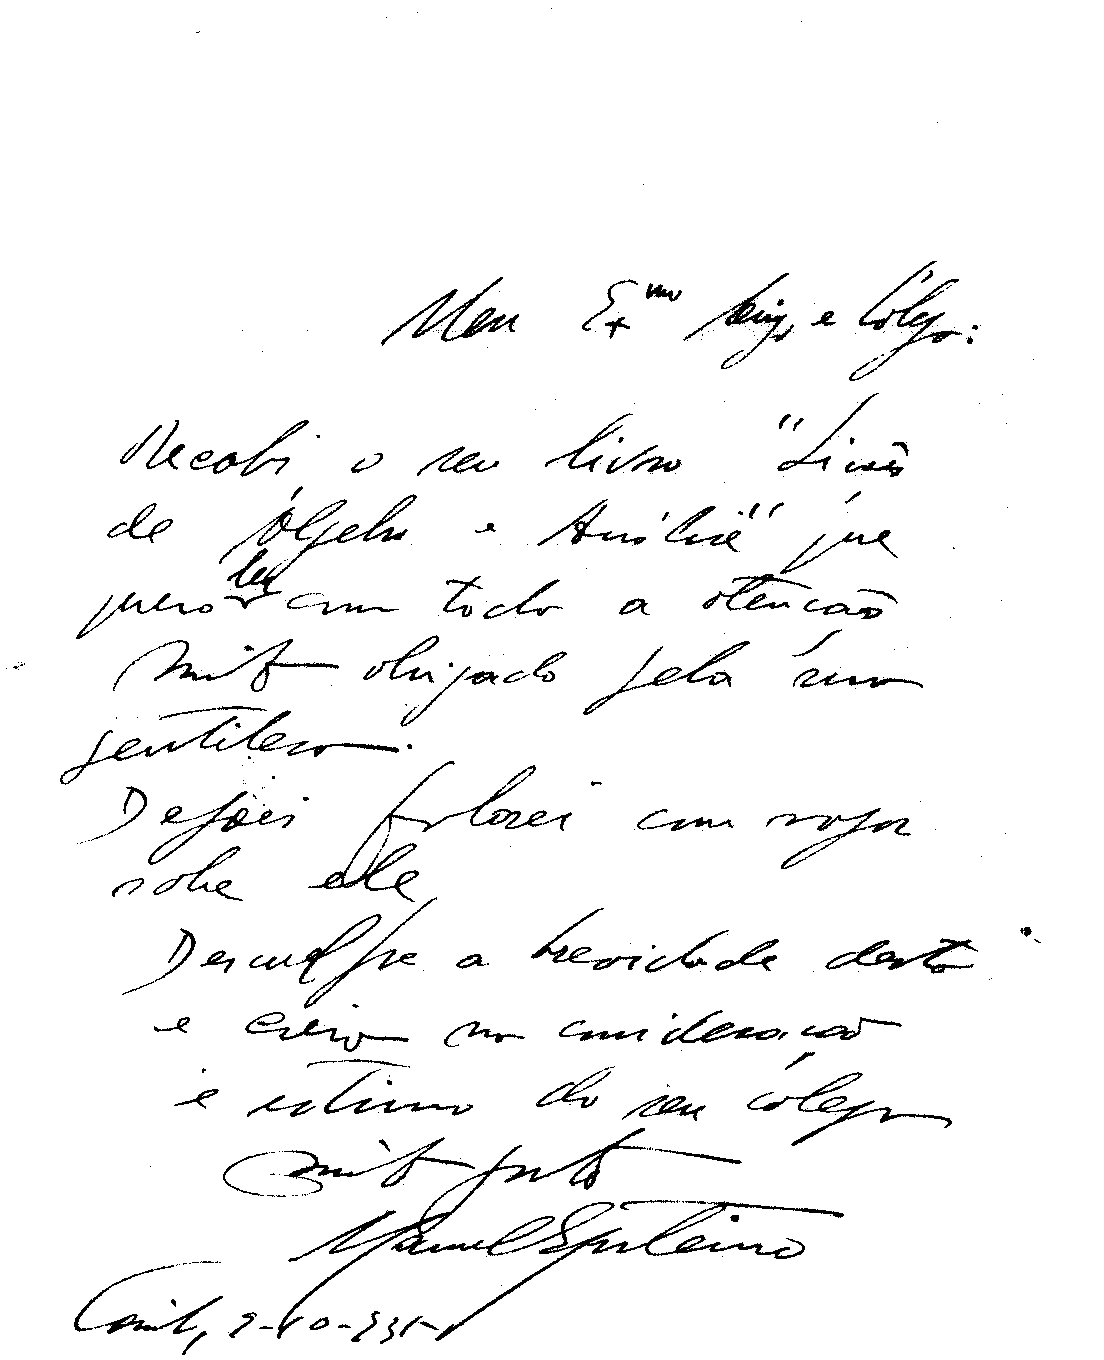 Meu Exmo amigo e Colega:
Recebi o seu livro "Lições
de Álgebra e Análise" que
quero ler com todo a atenção
Muito obrigado pela sua
gentileza.
Depois falarei com vagar
sobre ele
Desculpe a brevidade desta
e creia na consideração
e estima do seu colega
muito grato
Manuel
9-10-935